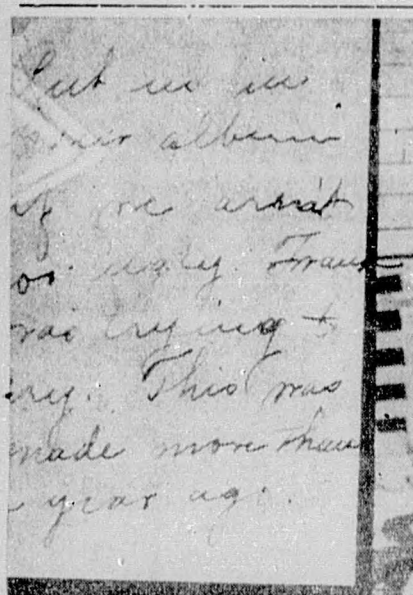 Put in
album
if we arn't
ugly. Frank
was trying to
cry. This was
made more than
a year ago.